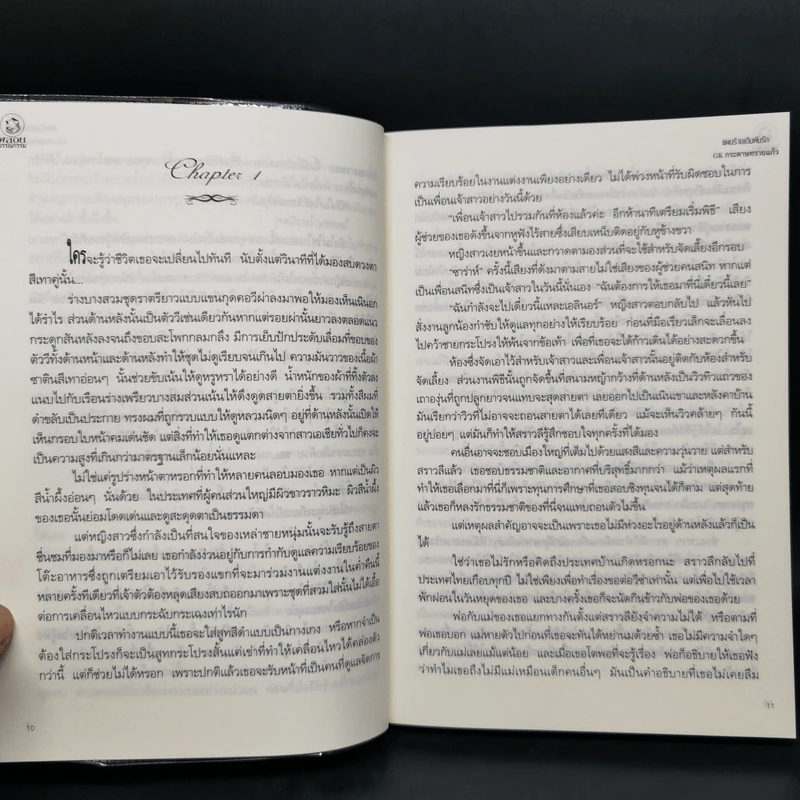 พลอย
วรรณกรรม
Chapter 1
ใครจะรู้ว่าชีวิตเธอจะเปลี่ยนไปทันที นับตั้งแต่วินาทีที่ได้มองสบดวงตา
สีเทาคู่นั้น...
ร่างบางสวมชุดราตรียาวแบบแขนกุดคอวีผ่าลงมาพอให้มองเห็นเนินอก
ได้รำไร ส่วนด้านหลังนั้นเป็นตัววีเช่นเดียวกันหากแต่รอยผ่านั้นยาวลงตลอดแนว
กระดูกสันหลังลงจนถึงขอบสะโพกกลมกลึง มีการเย็บปักประดับเลื่อมที่ขอบของ
ตัววีทั้งด้านหน้าและด้านหลังทำให้ชุดไม่ดูเรียบจนเกินไป ความมันวาวของเนื้อผ้า
ซาตินสีเทาอ่อนๆ นั้นช่วยขับเน้นให้ดูหรูหราได้อย่างดี น้ำหนักของผ้าที่ทิ้งตัวลง
แนบไปกับเรือนร่างเพรียวบางสมส่วนเน้นให้ดึงดูดสายตายิ่งขึ้น รวมทั้งสีผมที่
ดำขลับเป็นประกาย ทรงผมที่ถูกรวบแบบให้ดูหลวมนิดๆ อยู่ที่ด้านหลังนั้นเปิดให้
เห็นกรอบใบหน้าคมเด่นชัด แต่สิ่งที่ทำให้เธอดูแตกต่างจากสาวเอเชียทั่วไปก็คงจะ
เป็นความสูงที่เกินกว่ามาตรฐานเล็กน้อยนั่นแหละ
ไม่ใช่แค่รูปร่างหน้าตาหรอกที่ทำให้หลายคนลอบมองเธอ หากแต่เป็นผิว
สีน้ำผึ้งอ่อนๆ นั่นด้วย ในประเทศที่ผู้คนส่วนใหญ่มีผิวขาวราวหิมะ ผิวสีน้ำผึ้ง
ของเธอนั้นย่อมโดดเด่นและดูสะดุดตาเป็นธรรมดา
แต่หญิงสาวซึ่งกำลังเป็นที่สนใจของเหล่าชายหนุ่มนั้นจะรับรู้ถึงสายตา
ชื่นชมที่มองมาหรือก็ไม่เลย เธอกำลังง่วนอยู่กับการกำกับดูแลความเรียบร้อยของ
โต๊ะอาหารซึ่งถูกเตรียมเอาไว้รับรองแขกที่จะมาร่วมงานแต่งงานในค่ำคืนนี้
หลายครั้งทีเดียวที่เจ้าตัวต้องหลุดเสียงสบถออกมาเพราะชุดที่สวมใส่นั้นไม่ได้เอื้อ
ต่อการเคลื่อนไหวแบบกระฉับกระเฉงเท่าไรนัก
ปกติเวลาทำงานแบบนี้เธอจะใส่สูทสีดำแบบเป็นกางเกง หรือหากจำเป็น
ต้องใส่กระโปรงก็จะเป็นสูทกระโปรงสั้นแค่เข่าที่ทำให้เคลื่อนไหวได้คล่องตัว
กว่านี้ แต่ก็ช่วยไม่ได้หรอก เพราะปกติแล้วเธอจะรับหน้าที่เป็นคนที่ดูแลจัดการ
10
แผนร้ายเดิมพันรัก
GK กระดาษทรายแก้ว
ความเรียบร้อยในงานแต่งงานเพียงอย่างเดียว ไม่ได้พ่วงหน้าที่รับผิดชอบในการ
เป็นเพื่อนเจ้าสาวอย่างวันนี้ด้วย
“เพื่อนเจ้าสาวไปรวมกันที่ห้องแล้วค่ะ อีกห้านาทีเตรียมเริ่มพิธี” เสียง
ผู้ช่วยของเธอดังขึ้นจากหูฟังไร้สายซึ่งเสียบเหน็บติดอยู่กับหูข้างขวา
หญิงสาวเงยหน้าขึ้นและกวาดตามองส่วนที่จะใช้สำหรับจัดเลี้ยงอีกรอบ
“ซาร่าห์” ครั้งนี้เสียงที่ดังมาตามสายไม่ใช่เสียงของผู้ช่วยคนสนิท หากแต่
เป็นเพื่อนสนิทซึ่งเป็นเจ้าสาวในวันนี้นั่นเอง “ฉันต้องการให้เธอมาที่นี่เดี๋ยวนี้เลย”
“ฉันกำลังจะไปเดี๋ยวนี้แหละเอลินอร์” หญิงสาวตอบกลับไป แล้วหันไป
สั่งงานลูกน้องกำชับให้ดูแลทุกอย่างให้เรียบร้อย ก่อนที่มือเรียวเล็กจะเลื่อนลง
ไปคว้าชายกระโปรงให้พ้นจากข้อเท้า เพื่อที่เธอจะได้ก้าวเดินได้อย่างสะดวกขึ้น
ห้องซึ่งจัดเอาไว้สำหรับเจ้าสาวและเพื่อนเจ้าสาวนั้นอยู่ติดกับห้องสำหรับ
จัดเลี้ยง ส่วนงานพิธีนั้นถูกจัดขึ้นที่สนามหญ้ากว้างที่ด้านหลังเป็นวิวทิวแถวของ
เถาองุ่นที่ถูกปลูกยาวจนแทบจะสุดสายตา เลยออกไปเป็นเนินเขาและหลังคาบ้าน
มันเรียกว่าวิวที่ไม่อาจจะถอนสายตาได้เลยทีเดียว แม้จะเห็นวิวคล้ายๆ กันนี้
อยู่บ่อยๆ แต่มันก็ทำให้สราวลีรู้สึกชอบใจทุกครั้งที่ได้มอง
คนอื่นอาจจะชอบเมืองใหญ่ที่เต็มไปด้วยแสงสีและความวุ่นวาย แต่สำหรับ
สราวลีแล้ว เธอชอบธรรมชาติและอากาศที่บริสุทธิ์มากกว่า แม้ว่าเหตุผลแรกที่
ทำให้เธอเลือกมาที่นี่ก็เพราะทุนการศึกษาที่เธอสอบชิงทุนจนได้ก็ตาม แต่สุดท้าย
แล้วเธอก็หลงรักธรรมชาติของที่นี่จนแทบถอนตัวไม่ขึ้น
แต่เหตุผลสำคัญอาจจะเป็นเพราะเธอไม่มีห่วงอะไรอยู่ด้านหลังแล้วก็เป็น
ได้
ใช่ว่าเธอไม่รักหรือคิดถึงประเทศบ้านเกิดหรอกนะ สราวลีกลับไปที่
ประเทศไทยเกือบทุกปี ไม่ใช่เพียงเพื่อทำเรื่องขอต่อวีซ่าเท่านั้น แต่เพื่อไปใช้เวลา
พักผ่อนในวันหยุดของเธอ และบางครั้งเธอก็จะนัดกินข้าวกับพ่อของเธอด้วย
พ่อกับแม่ของเธอแยกทางกันตั้งแต่สราวลียังจำความไม่ได้ หรือตามที่
พ่อเธอบอก แม่หายตัวไปก่อนที่เธอจะทันได้หย่านมด้วยซ้ำ เธอไม่มีความจำใดๆ
เกี่ยวกับแม่เลยแม้แต่น้อย และเมื่อเธอโตพอที่จะรู้เรื่อง พ่อก็อธิบายให้เธอฟัง
ว่าทำไมเธอถึงไม่มีแม่เหมือนเด็กคนอื่นๆ มันเป็นคำอธิบายที่เธอไม่เคยลืม
11